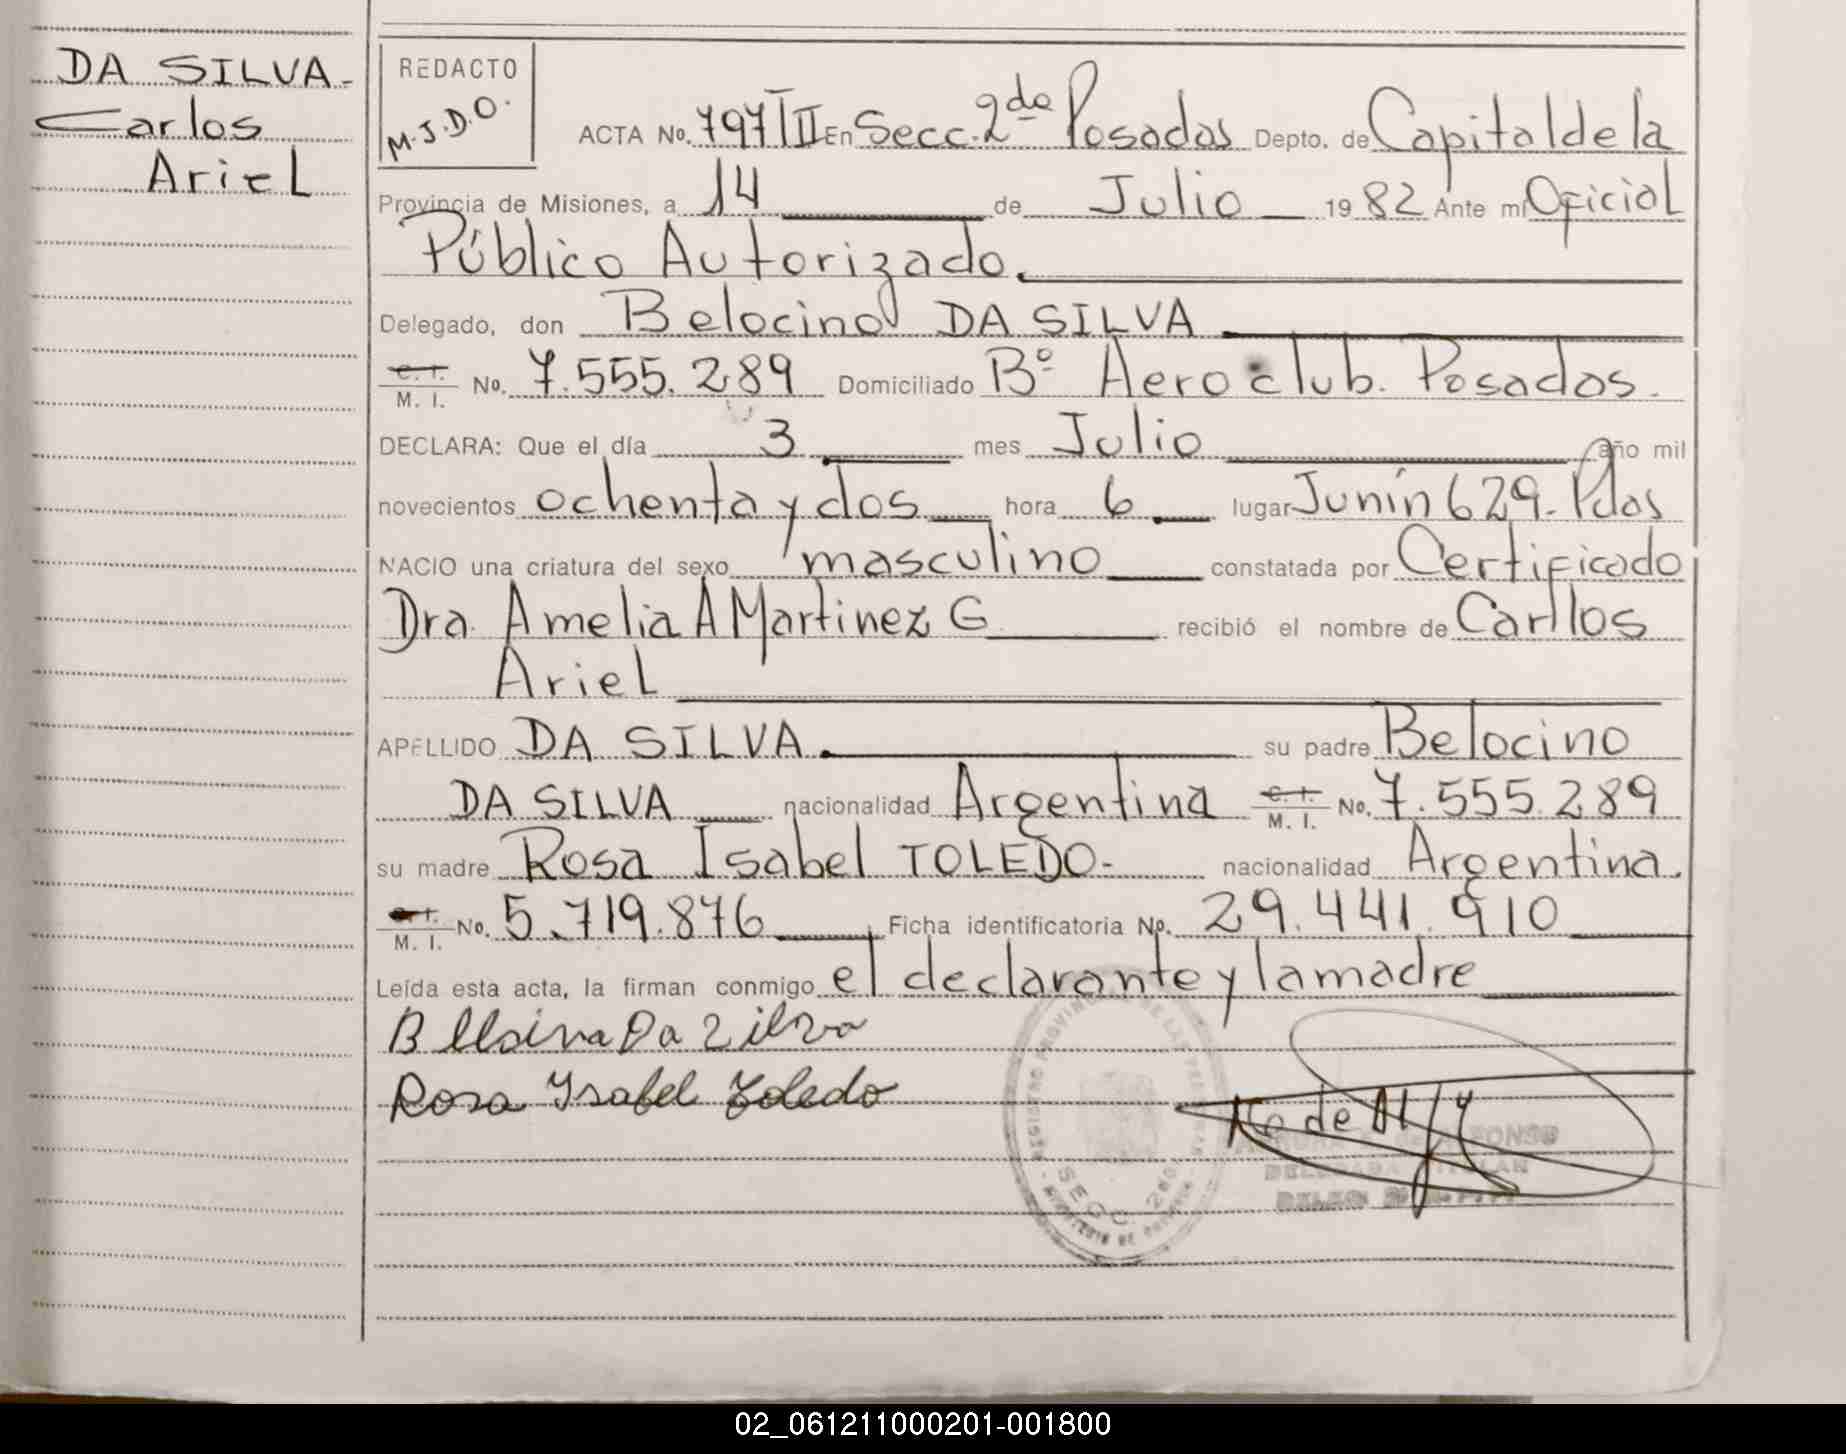 DA SILVA-
Carlos
Ariel
REDACTO
M.J.D.O.
ACTA No. 797 TII En Secc. 2da Posadas Depto. de Capital de la
Provincia de Misiones, a 14 de Julio 1982 Ante mí Oficial
Público Autorizado.
Delegado, don Belocino DA SILVA
C. I. M. I. No. 7.555.289 Domiciliado Bº Aero club. Posadas.
DECLARA: Que el día 3 mes Julio año mil
novecientos ochenta y dos hora 6 lugar Junín 629. Pdas
NACIO una criatura del sexo masculino constatada por Certificado
Dra. Amelia A Martinez G recibió el nombre de Carllos
Ariel
APELLIDO DA SILVA. su padre Belocino
DA SILVA nacionalidad Argentina C. I. M. I. No. 7.555.289
su madre Rosa Isabel TOLEDO- nacionalidad Argentina.
C. I. M. I. No. 5.719.876 Ficha identificatoria No. 29.441.910
Leída esta acta, la firman conmigo el declarante y la madre
Da Silva
Rosa Isabel Toledo
REGISTRO PROVINCIAL DE LAS PERSONAS
SECC. 2da
DELEGADA TITULAR
02_061211000201-001800